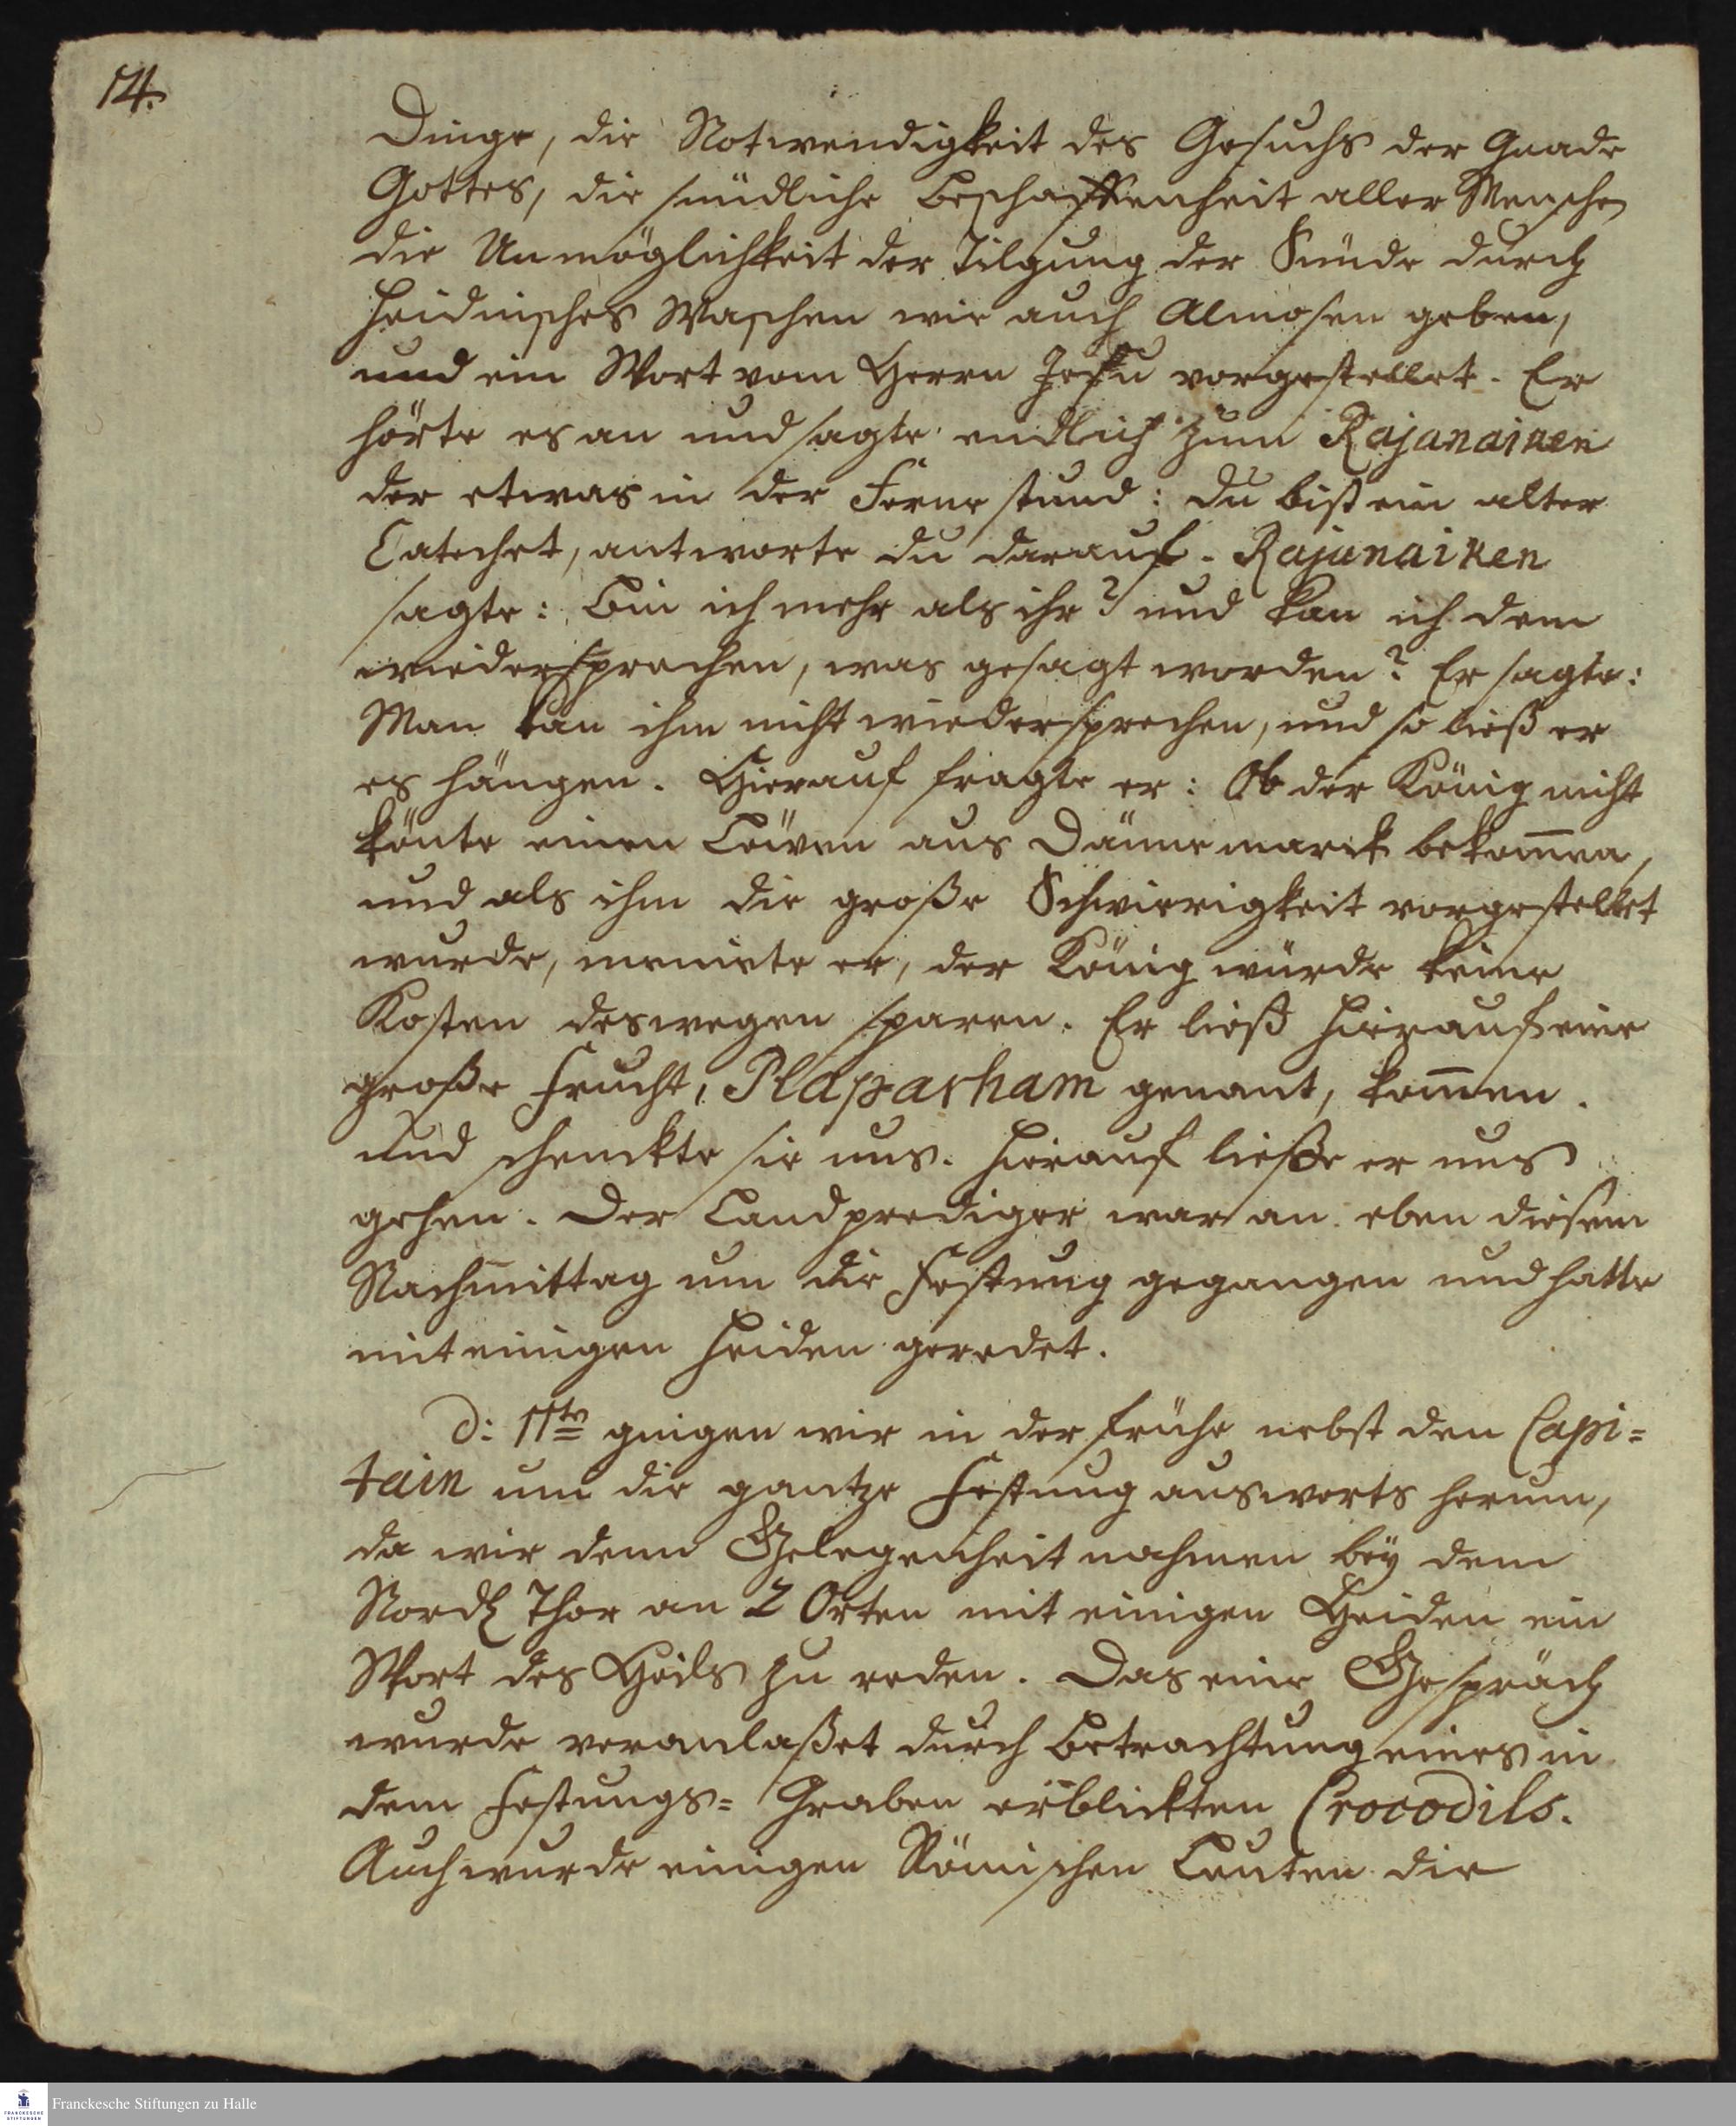 14.
Dinge, die Notwendigkeit des Gesuchs der Gnade
Gottes, die sündliche Beschaffenheit aller Menschen
die Unmöglichkeit der Tilgung der Sünde durch
heidnisches Waschen wie auch Almosen geben,
und ein Wort vom Herrn Jesu vorgestellet. Er
hörte es an und sagte endlich zum Rajanaiken
der etwas in der Ferne stund: du bist ein alter
Catechet, antworte du darauf. Rajanaiken
sagte: Bin ich mehr als ihr? und kan ich dem
wiedersprechen, was gesagt worden? Er sagte:
Man kan ihm nicht wiedersprechen, und so ließ er
es hängen. Hierauf fragte er: Ob der König nicht
könte einen Löwen aus Dännemarck bekom̄en,
und als ihm die große Schwierigkeit vorgestellet
wurde, meinete er, der König würde keine
Kosten deswegen sparen. Er ließ hierauf eine
große Frucht, Plāparham genant, kom̄en.
und schenckte sie uns. Hierauf ließe er uns
gehen. Der Landprediger war an eben diesem
Nachmittag um die Festung gegangen und hatte
mit einigen Heiden geredet.
d: 11te gingen wir in der Frühe nebst den Capi=
tain um die gantze Festung auswerts herum,
da wir denn Gelegenheit nahmen bey dem
Nordl Thor an 2 Orten mit einigen Heiden ein
Wort des Heils zu reden. Das eine Gespräch
wurde veranlaßet durch Betrachtung eines in
dem Festungs= Graben erblickten Crocodils.
Auch wurde einigen Römischen Leuten die